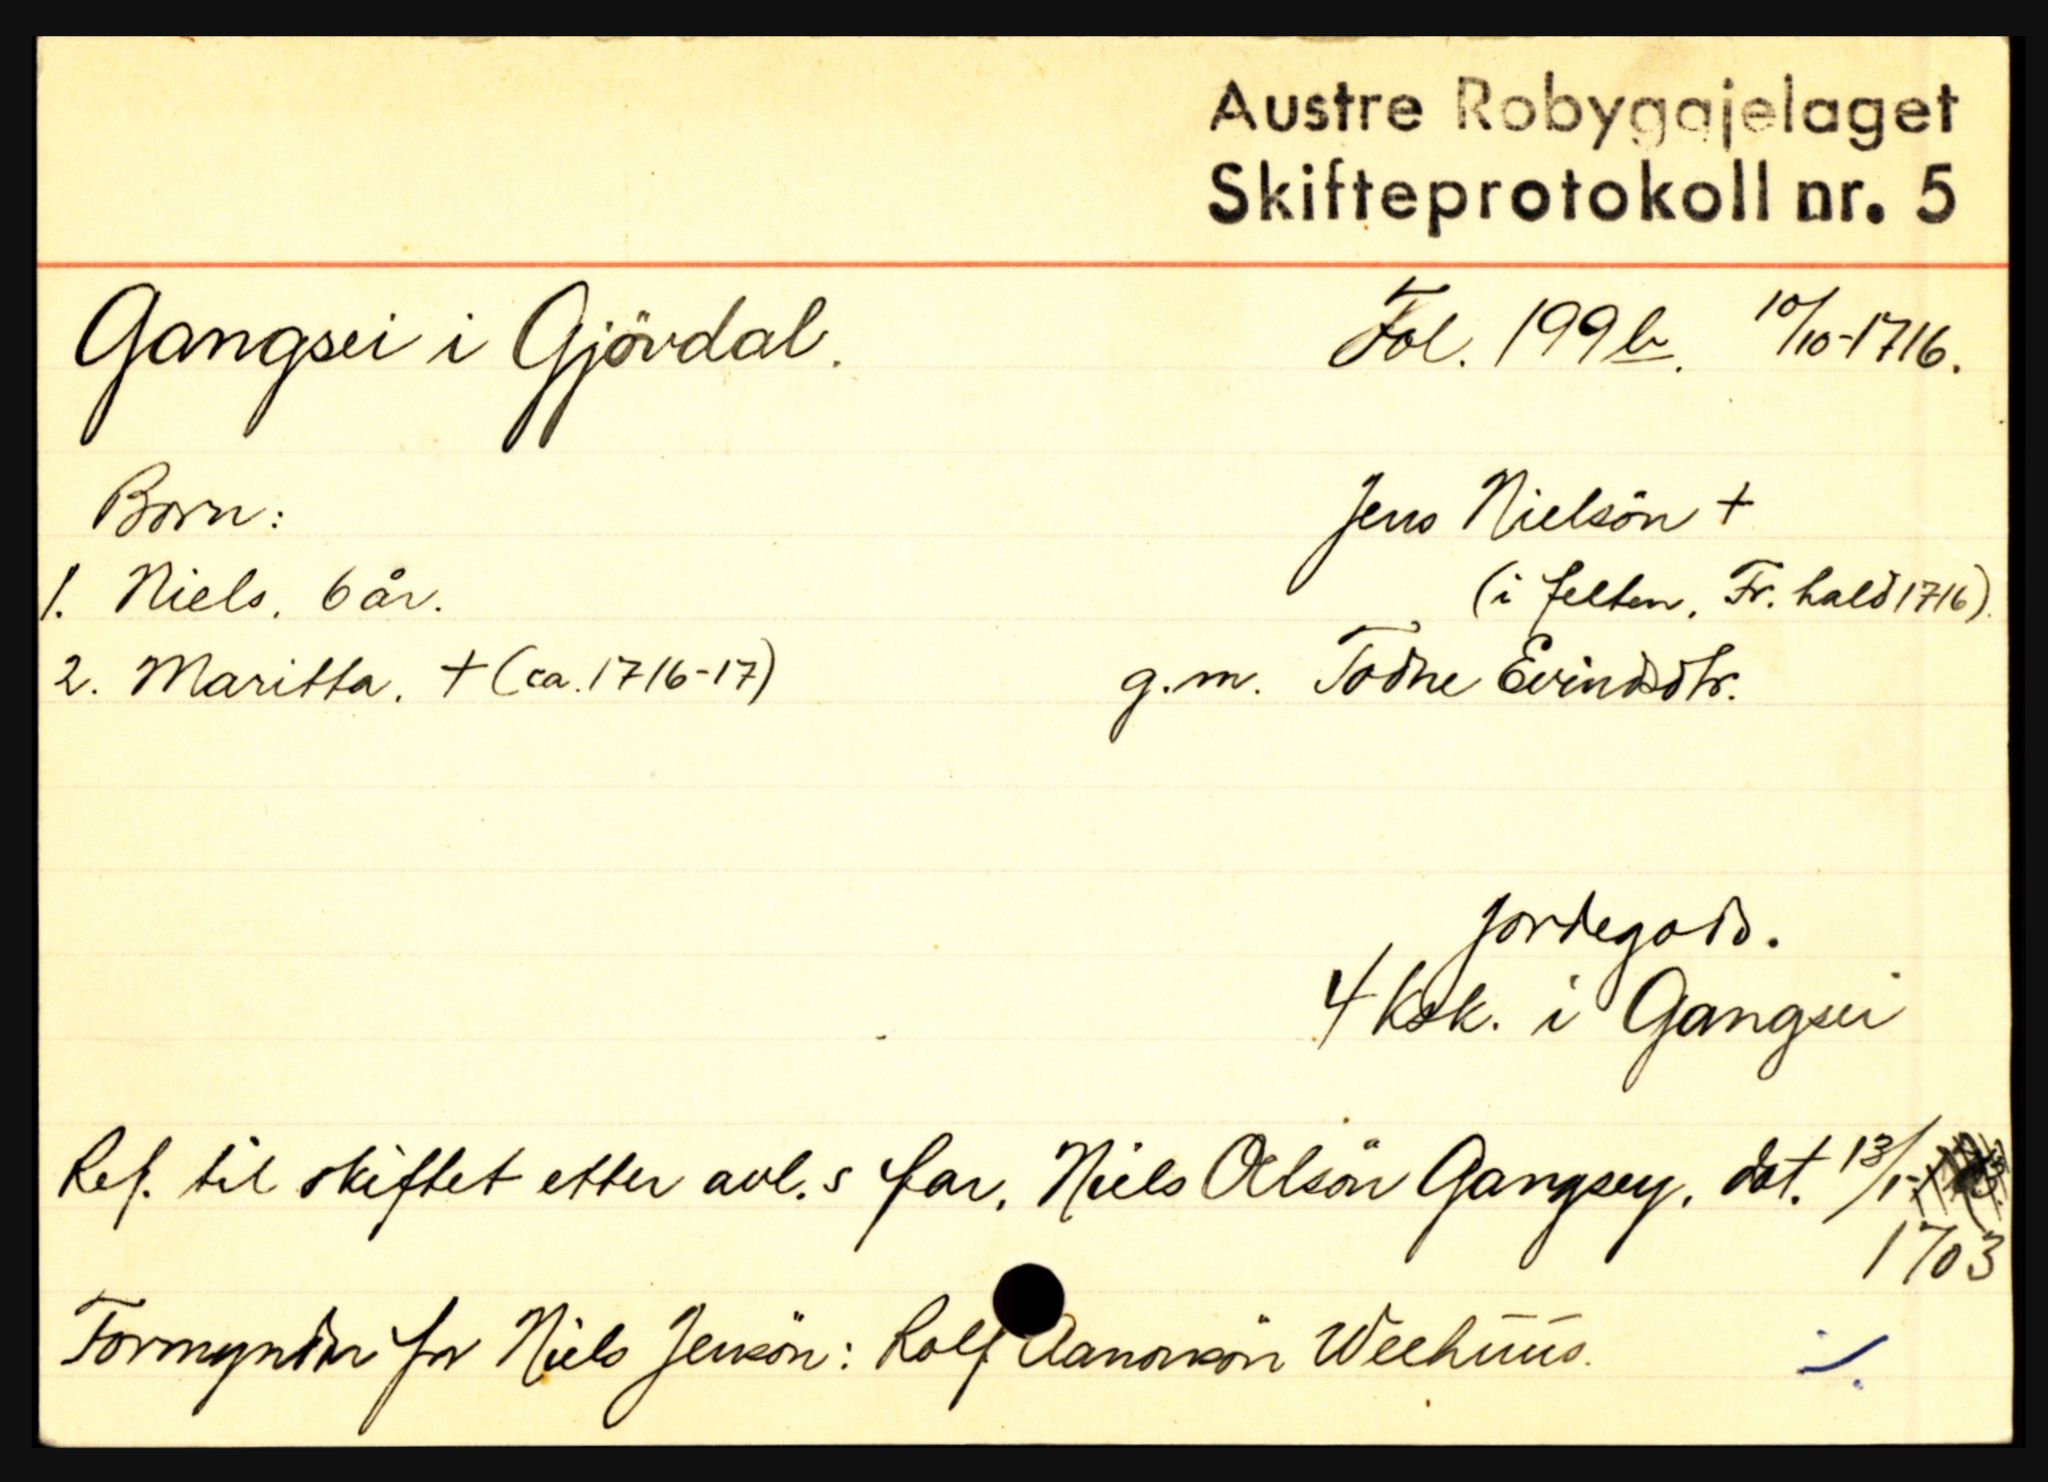 Austre Robyggjelaget
Skifteprotokoll nr. 5
Gangsei i Gjövdal. Fol. 199 b. 10/10-1716.
Born: Jens Nielsön +
1. Niels, 6 år. (i felten, Fr. hald 1716).
2. Maritta, + (ca. 1716-17) g.m. Todne Evindsdtr.
Jordegods.
4 ksk. i Gangsei
Ref. til skiftet etter avl.s far, Niels Olsön Gangsey, dat. 13/1-
1703
Formyndar for Niels Jensön: Rolf Aanonsön Weehuus.